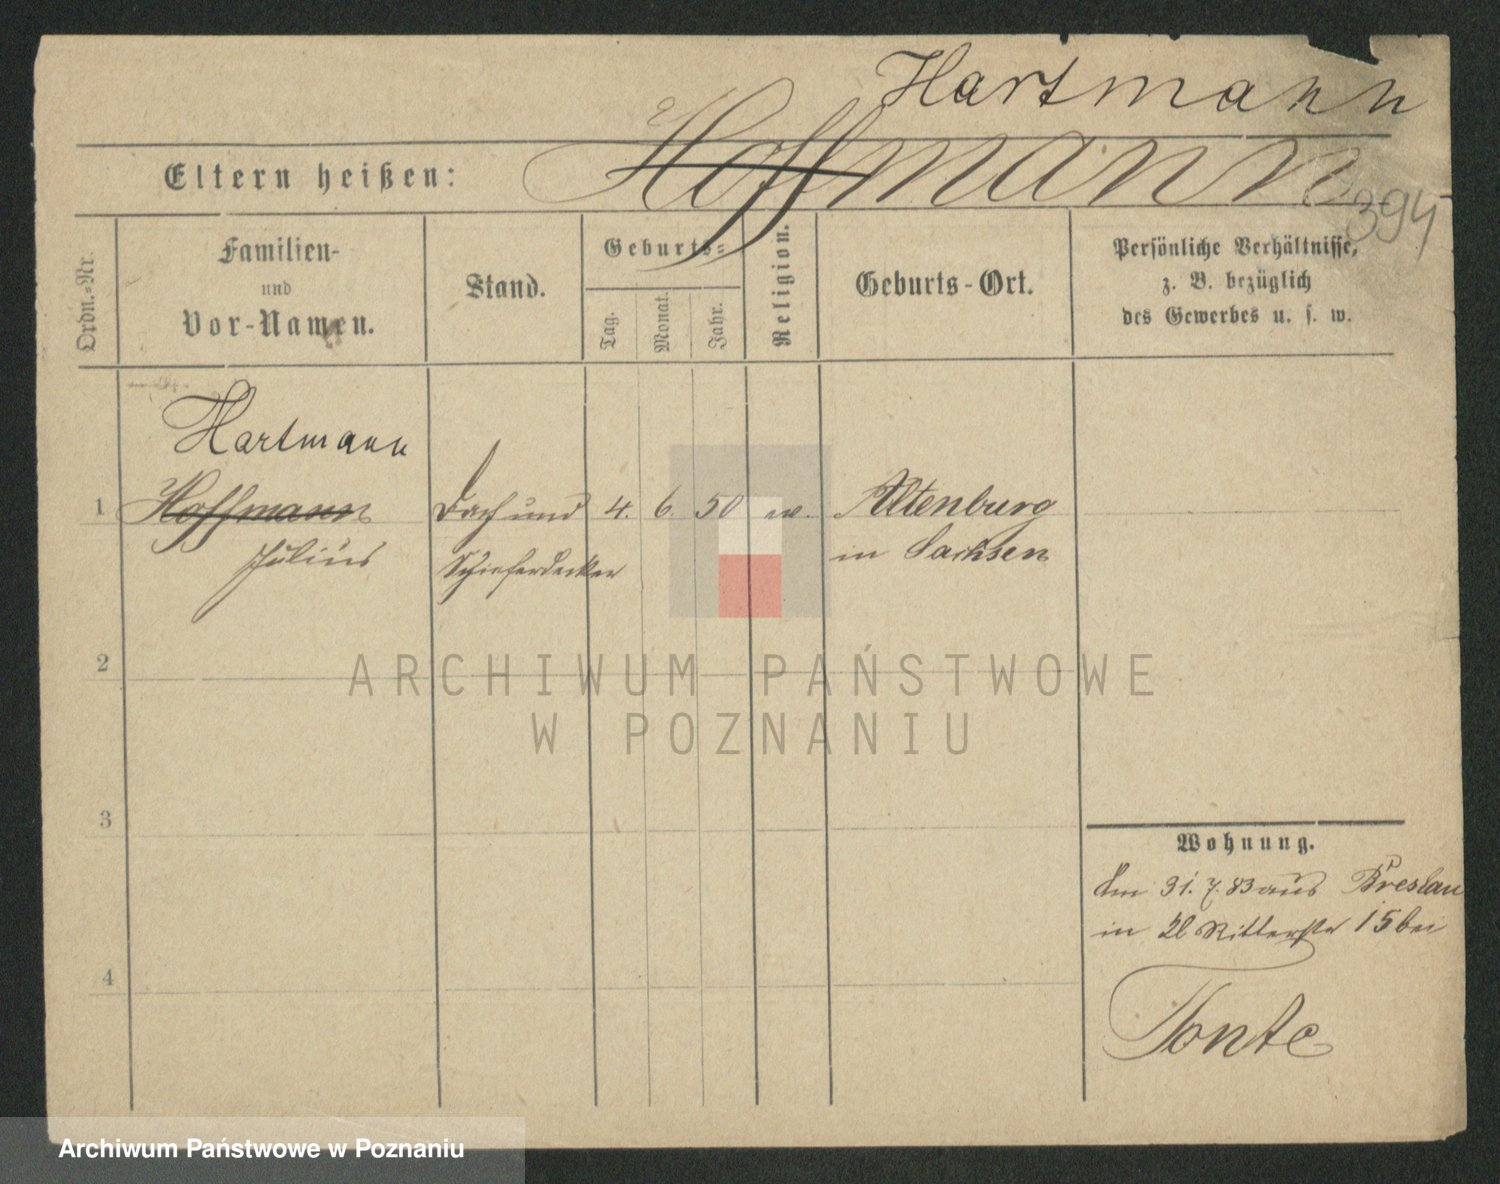 Hartmann
Eltern heißen: Hoffmann
394
Ordn.-Nr.
Familien-
und
Vor-Namen.
Stand.
Geburts-
Tag.
Monat.
Jahr.
Religion.
Geburts-Ort.
Persönliche Verhältnisse,
z. B. bezüglich
des Gewerbes u. s. w.
Hartmann
1 Hoffmann Dach und 4. 6. 50 Altenburg
Julius Schieferdecker in Sachsen
2
ARCHIWUM PAŃSTWOWE
W POZNANIU
3
Wohnung.
31. 7. 83 aus Breslau
in Ritterstr 15 bei
4
Tonte
Archiwum Państwowe w Poznaniu